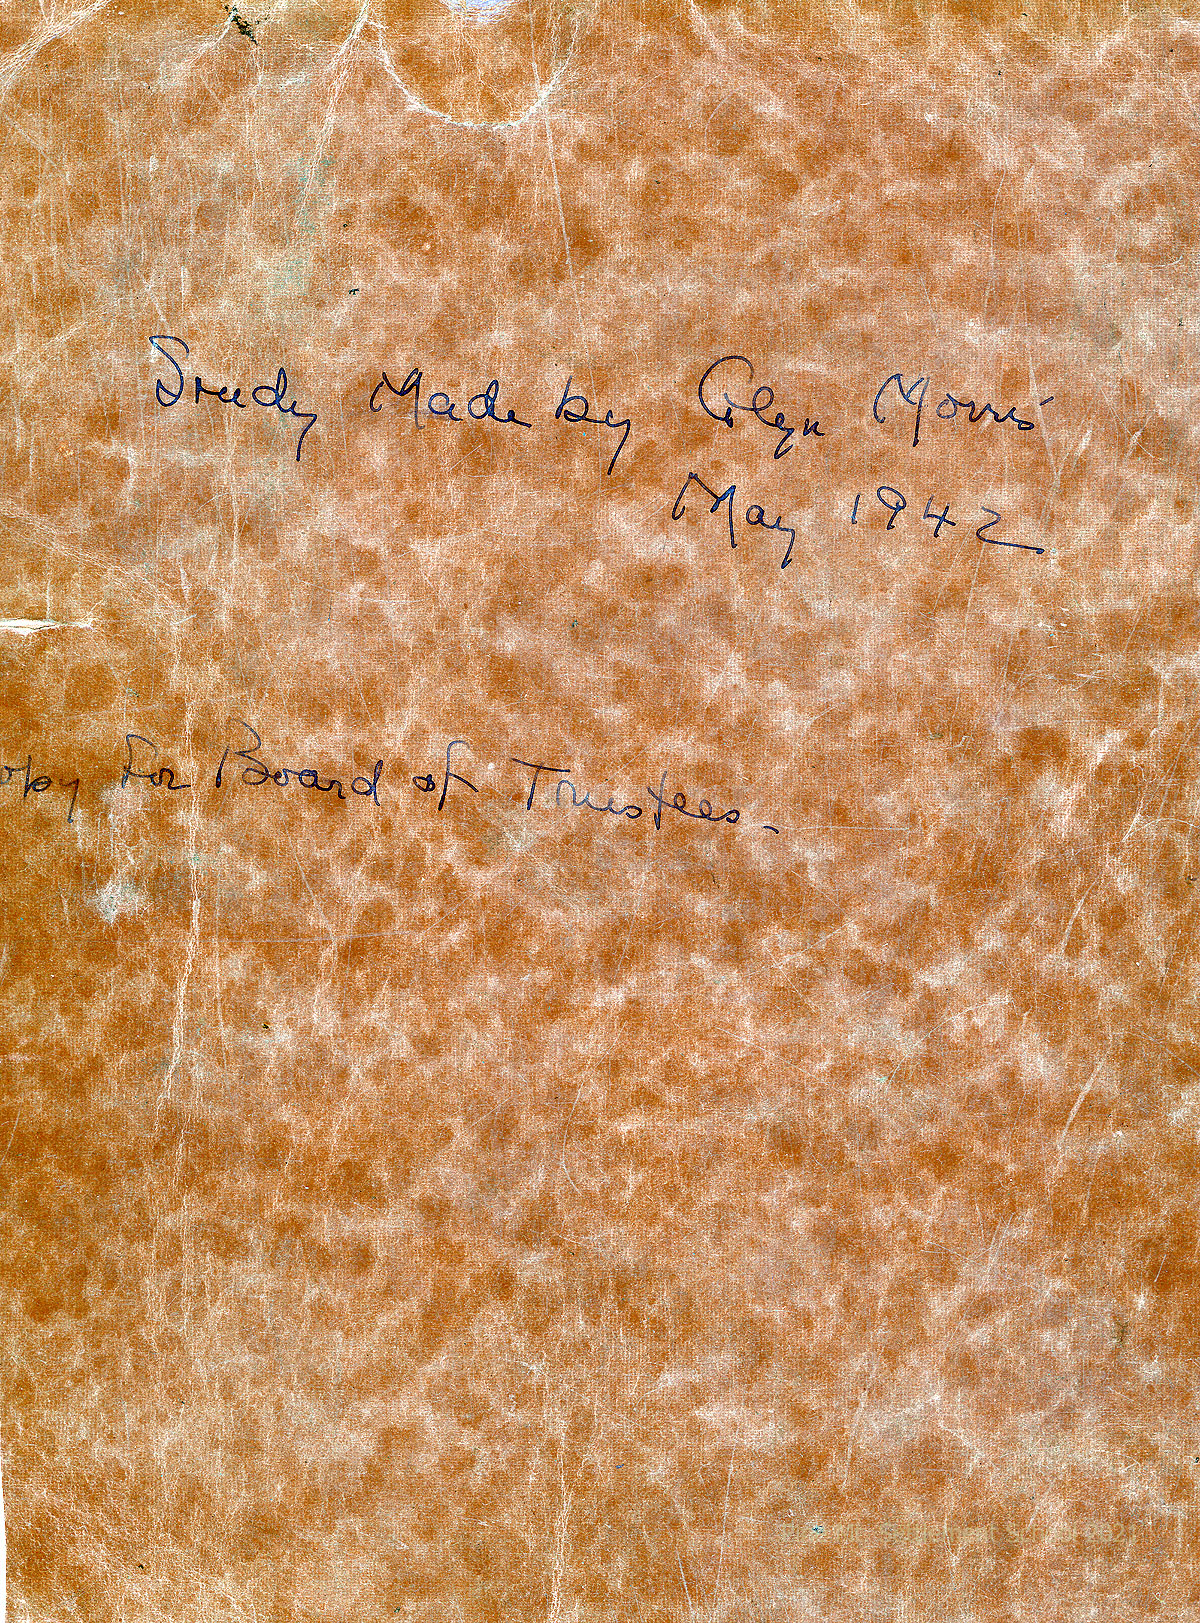 Study Made by Glyn Morris
May 1942
opy for Board of Trustees.